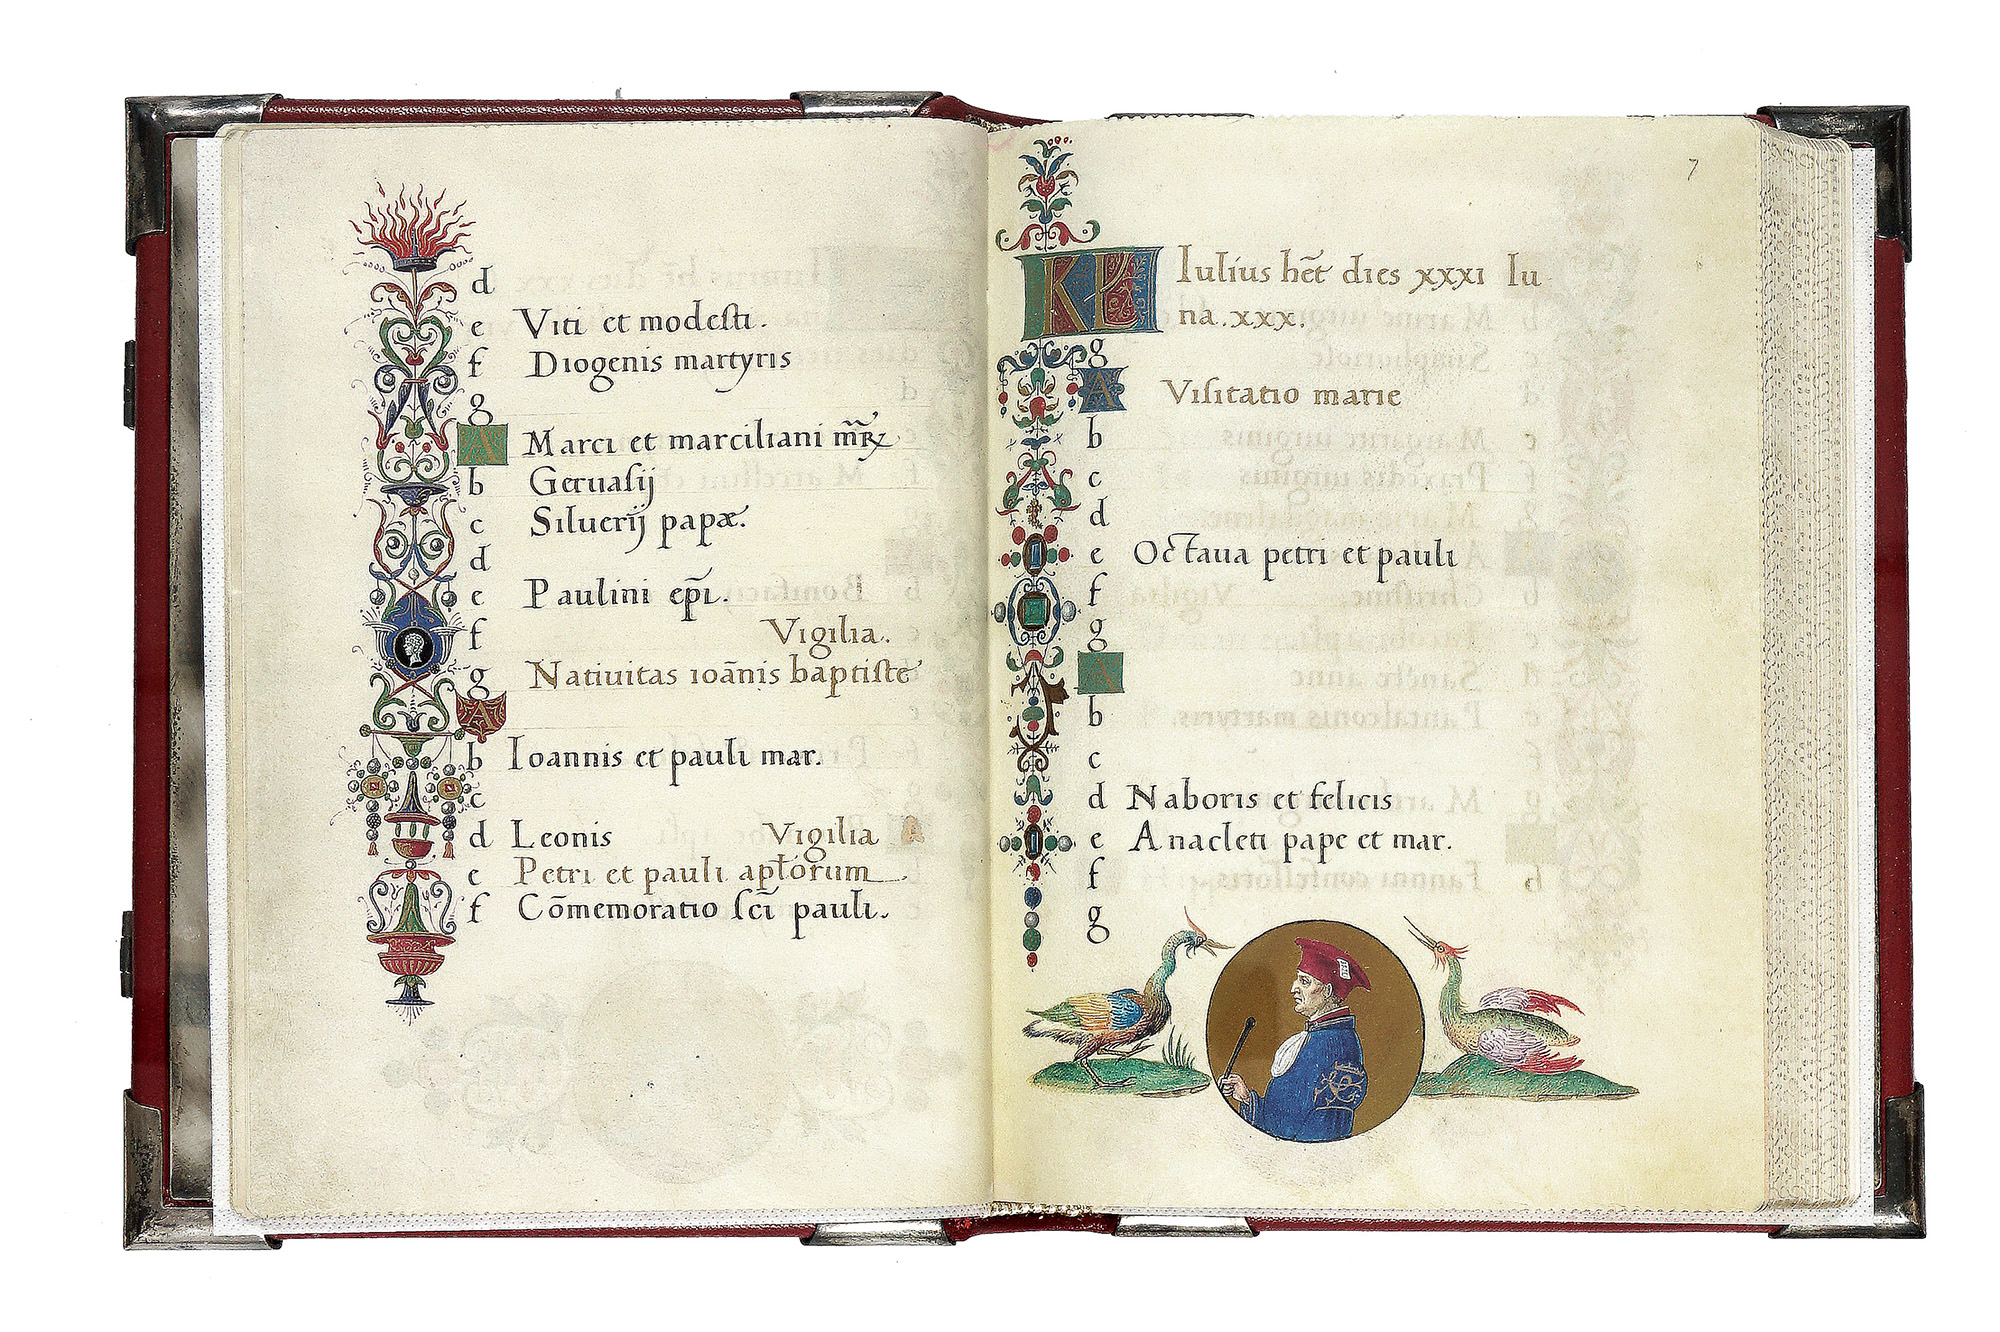 d
e Viti et modesti.
f Diogenis martyris
g
A Marci et marciliani mr̄ꝝ
b Geruasij
c Siluerij papæ.
d
e Paulini ep̄i.
f Vigilia.
g Natiuitas ioānis baptiste
A
b Ioannis et pauli mar.
c
d Leonis Vigilia
e Petri et pauli apłorum
f Cōmemoratio sc̄i pauli.
7
KL Iulius hēt dies xxxi Lu
na.xxx.
g
A Visitatio marie
b
c
d
e Octaua petri et pauli
f
g
A
b
c
d Naboris et felicis
e Anacleti pape et mar.
f
g